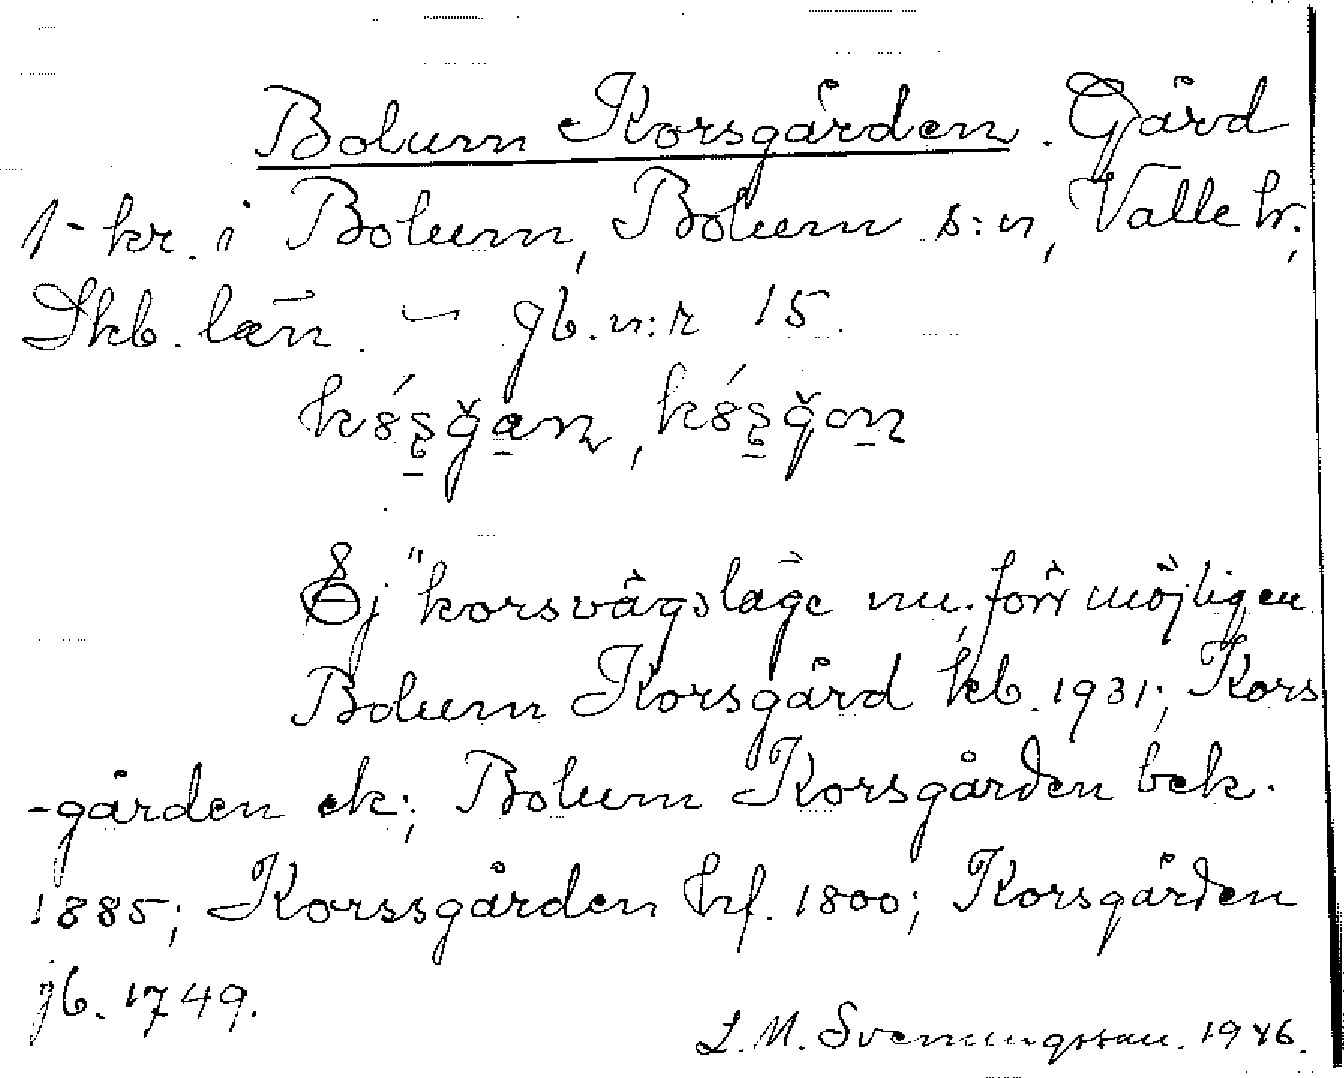 Bolum Korsgården. Gård
1-kr. i Bolum, Bolum s:n, Valle hr.,
Skb. län. – jb. n:r 15.
Ej "korsvägsläge nu, förr möjligen
Bolum Korsgård kb. 1931; Kors
-gården ek; Bolum Korsgården bek.
1885; Korssgården hf. 1800; Korsgården
jb. 1749.
L.M. Svenningsson. 1946.